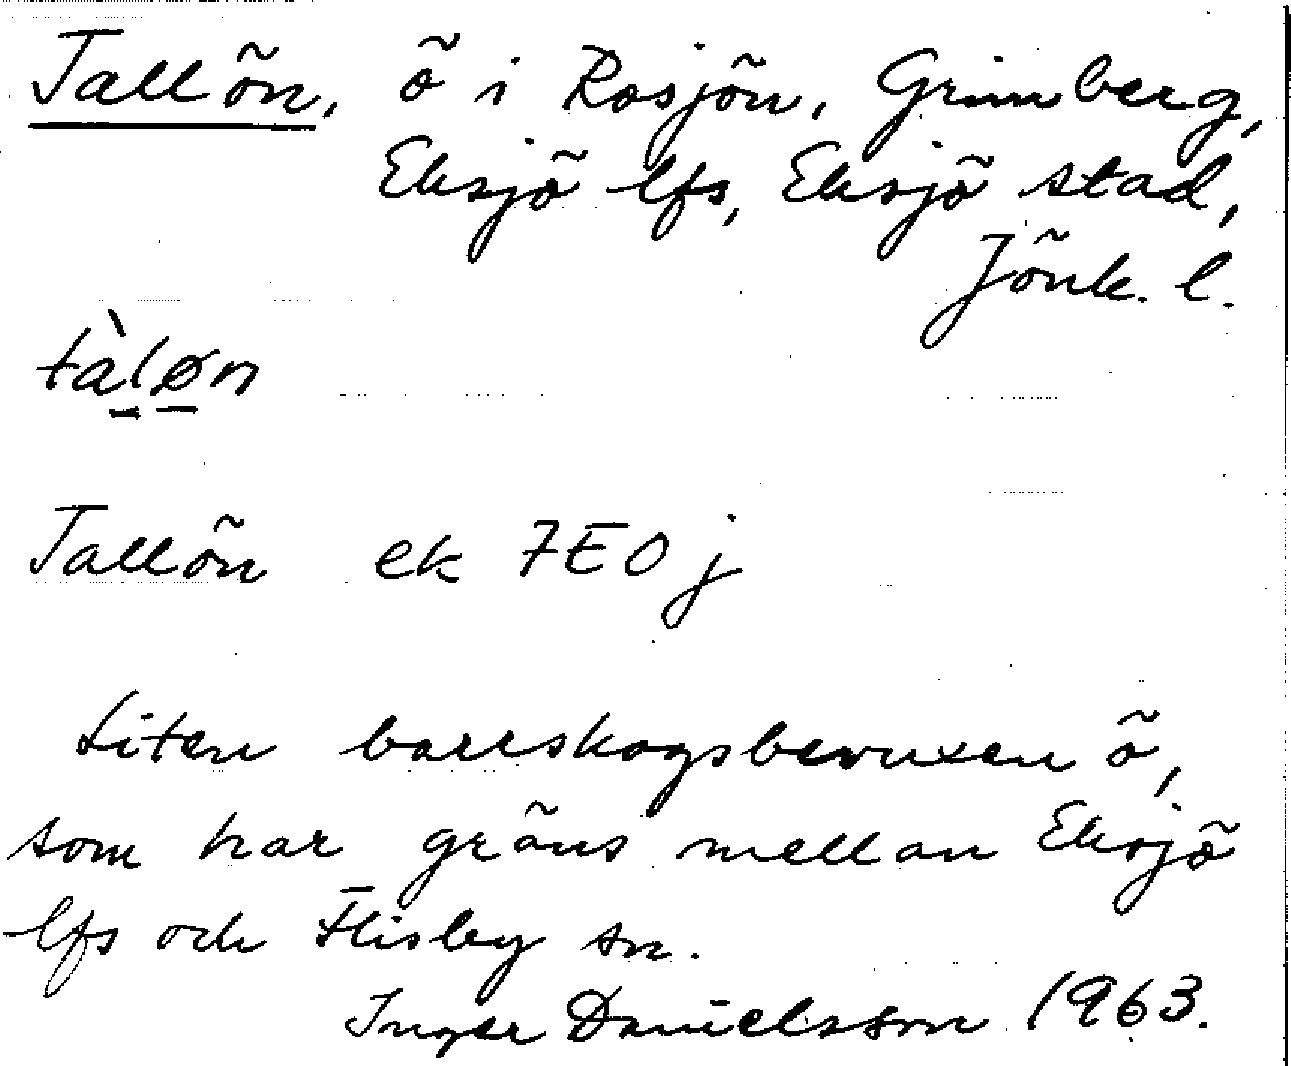 Tallön, ö i Rosjön, Grimberg,
Eksjö lfs, Eksjö stad,
Jönk. l.
tàløn
Tallön ek 7E0j
Liten barrskogsbevuxen ö,
som har gräns mellan Eksjö
lfs och Flisby sn.
Inger Danielsson 1963.